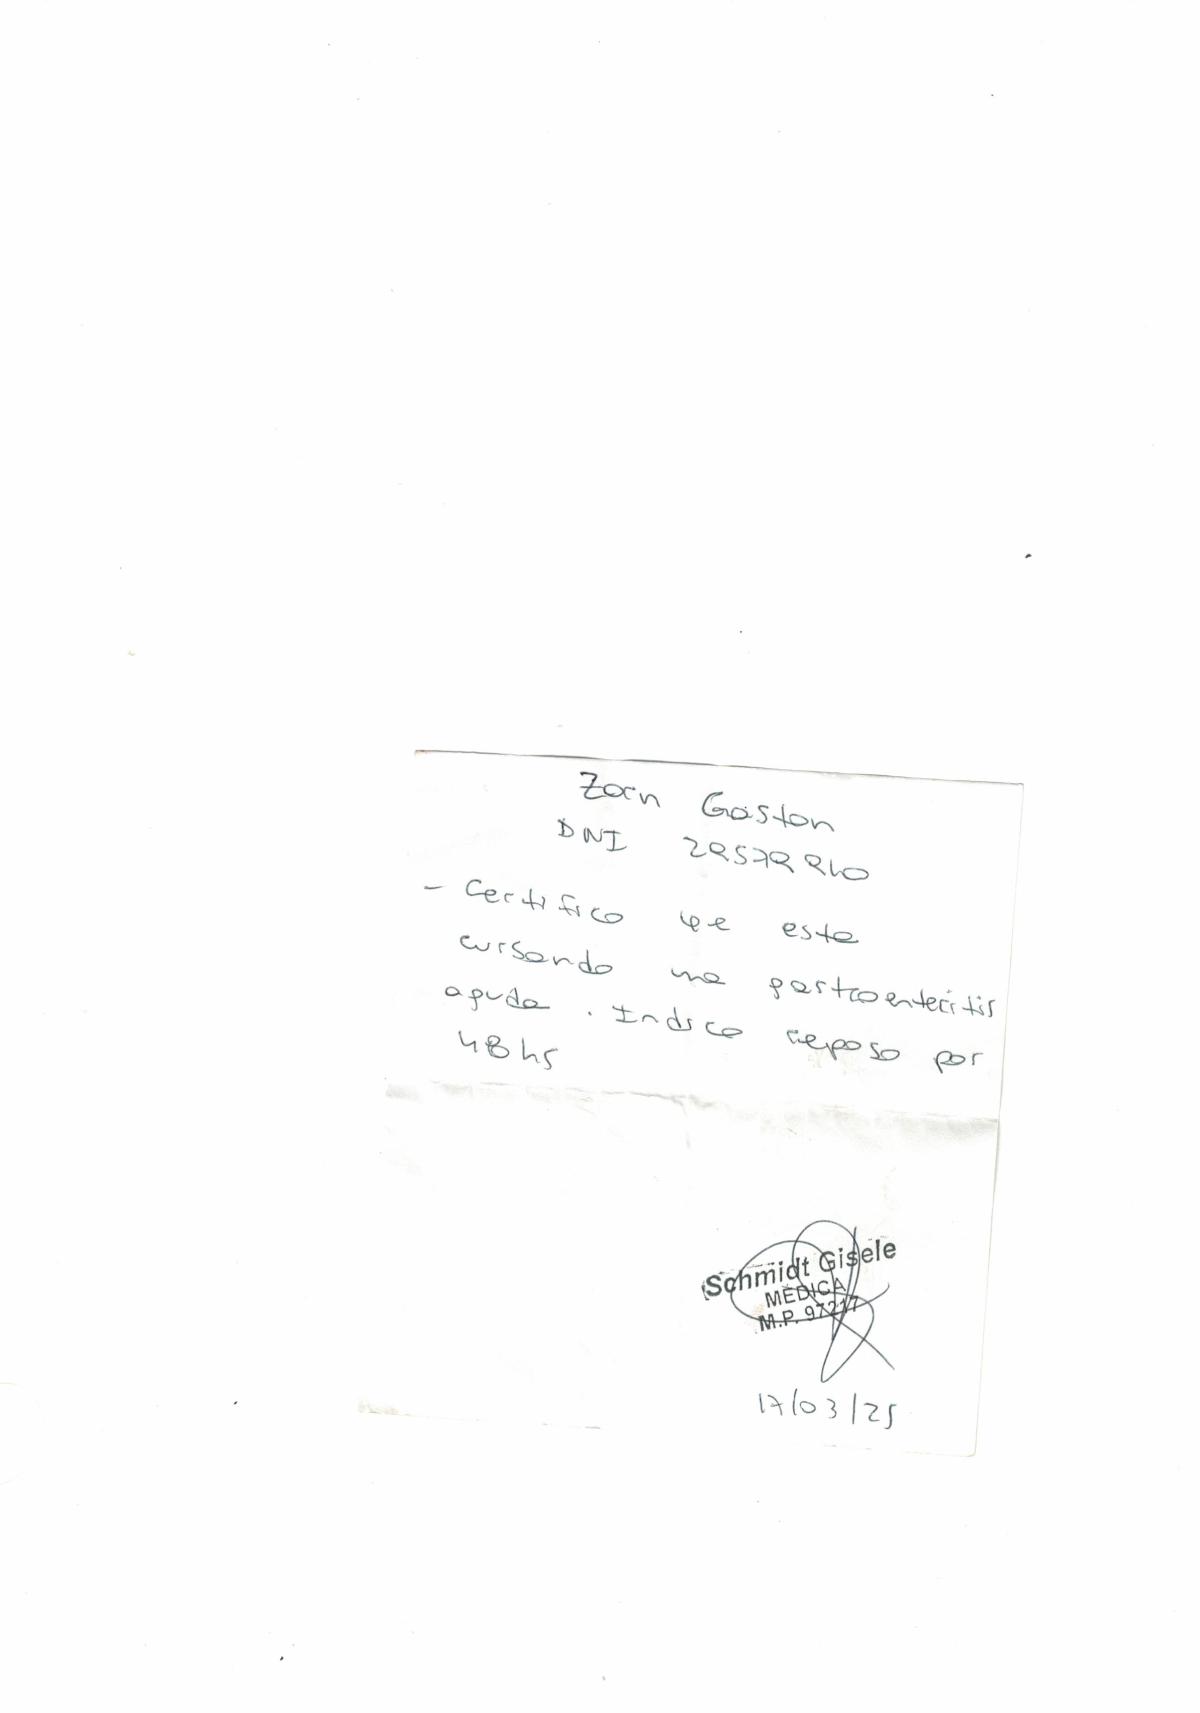 Zorn Gaston
DNI
- Certifico que este
cursando una gastroenteritis
aguda. Indico reposo por
48 hs
Schmidt Gisele
MÉDICA
M.P. 97217
17/03/25